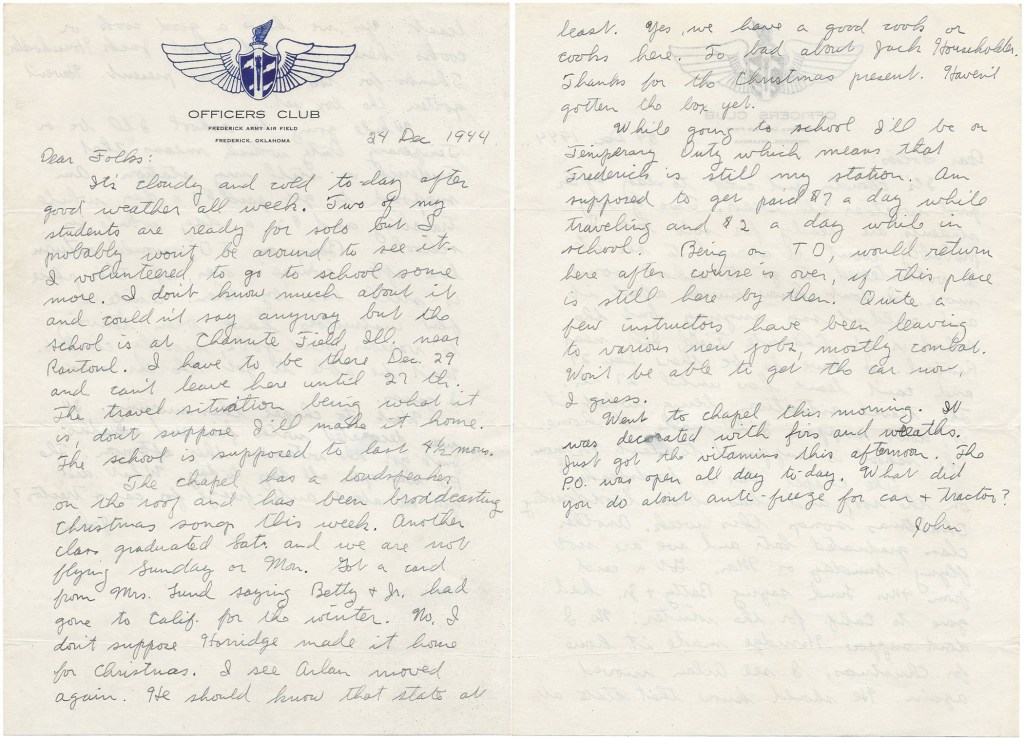 OFFICERS CLUB
FREDERICK ARMY AIR FIELD
FREDERICK, OKLAHOMA
24 Dec 1944
Dear Folks:
It's cloudy and cold to-day after
good weather all week. Two of my
students are ready for solo but I
probably won't be around to see it.
I volunteered to go to school some
more. I don't know much about it
and couldn't say anyway but the
school is at Chanute Field, Ill. near
Rantoul. I have to be there Dec. 29
and can't leave here until 27 th.
The travel situation being what it
is, don't suppose I'll make it home.
The school is supposed to last 4½ mons.
The chapel has a loudspeaker
on the roof and has been brodcasting
Christmas songs this week. Another
class graduated Sat. and we are not
flying Sunday or Mon. Got a card
from Mrs. Lund saying Betty + Jr. had
gone to Calif. for the winter. No, I
don't suppose Horridge made it home
for Christmas. I see Arlan moved
again. He should know that state at
least. Yes, we have a good cook or
cooks here. To bad about Jack Householder.
Thanks for the Christmas present. Haven't
gotten the box yet.
While going to school I'll be on
Temporary Duty which means that
Frederick is still my station. Am
supposed to get paid $7 a day while
traveling and $2 a day while in
school. Being on T D, would return
here after course is over, if this place
is still here by then. Quite a
few instructors have been leaving
to various new jobs, mostly combat.
Won't be able to get the car now,
I guess.
Went to chapel this morning. It
was decorated with firs and wreaths.
Just got the vitamins this afternoon. The
P.O. was open all day to-day. What did
you do about anti-freeze for car + tractor?
John